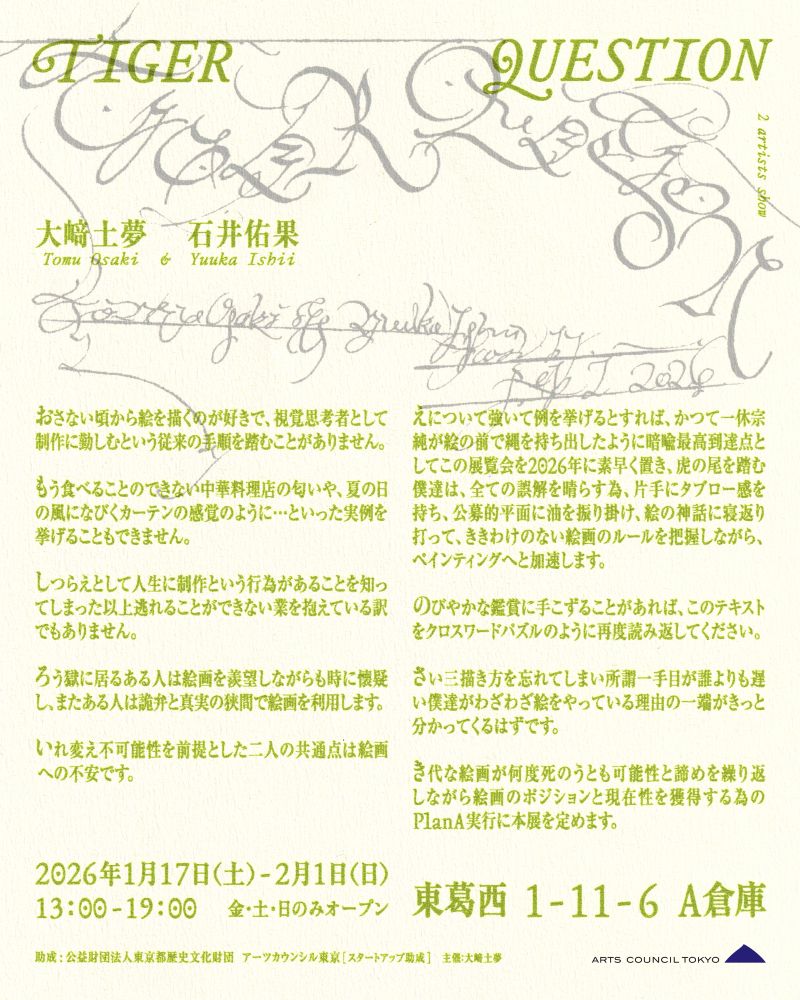 TIGER QUESTION
2 artists show
大﨑土夢 石井佑果
Tomu Osaki & Yuuka Ishii
おさない頃から絵を描くのが好きで、視覚思考者として
制作に勤しむという従来の手順を踏むことがありません。
もう食べることのできない中華料理店の匂いや、夏の日
の風になびくカーテンの感覚のように…といった実例を
挙げることもできません。
しつらえとして人生に制作という行為があることを知っ
てしまった以上逃れることができない業を抱えている訳
でもありません。
ろう獄に居るある人は絵画を羨望しながらも時に懐疑
し、またある人は詭弁と真実の狭間で絵画を利用します。
いれ変え不可能性を前提とした二人の共通点は絵画
への不安です。
えについて強いて例を挙げるとすれば、かつて一休宗
純が絵の前で縄を持ち出したように暗喩最高到達点と
してこの展覧会を2026年に素早く置き、虎の尾を踏む
僕達は、全ての誤解を晴らす為、片手にタブロー感を
持ち、公募的平面に油を振り掛け、絵の神話に寝返り
打って、ききわけのない絵画のルールを把握しながら、
ペインティングへと加速します。
のびやかな鑑賞に手こずることがあれば、このテキスト
をクロスワードパズルのように再度読み返してください。
さい三描き方を忘れてしまい所謂一手目が誰よりも遅
い僕達がわざわざ絵をやっている理由の一端がきっと
分かってくるはずです。
き代な絵画が何度死のうとも可能性と諦めを繰り返
しながら絵画のポジションと現在性を獲得する為の
PlanA実行に本展を定めます。
2026年1月17日(土)-2月1日(日)
13:00-19:00 金・土・日のみオープン
東葛西 1-11-6 A倉庫
助成:公益財団法人東京都歴史文化財団 アーツカウンシル東京[スタートアップ助成] 主催:大﨑土夢
ARTS COUNCIL TOKYO